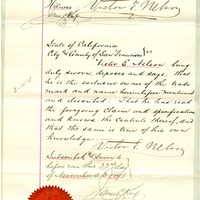 Witness
Victor E. Nelson
State of California
City & County of San Francisco } ss
Victor E. Nelson being
duly sworn, deposes and says that
he is the exclusive owner of the trade
mark and name hereinbefore mentioned
and described. That he has read
the foregoing Claim and specification
and knows the Contents thereof, and
that the same is true of his own
knowledge
Victor E. Nelson
Subscribed & Sworn to
before me this 22nd day
of November